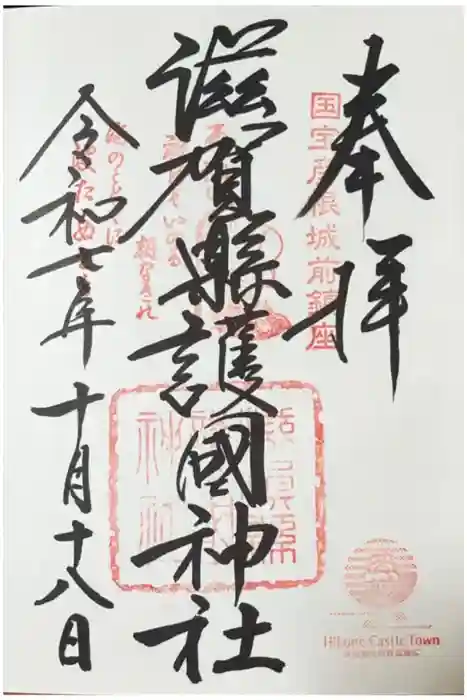 奉拝
国宝彦根城前鎮座
滋賀縣護國神社
令和七年十月十八日
Hikone Castle Town